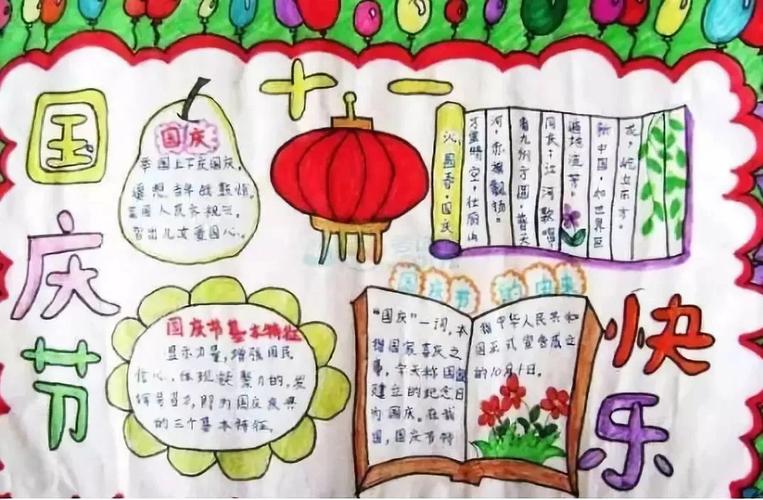 十一
国庆节
国庆
举国上下庆国庆,
遥想 年战鼓惊。
富国人民齐祝云,
智出儿女爱国心。
沁园春·国庆
万里晴空,壮丽山
河,赤旗飘扬。
看九州方圆,普天
同庆;江河歌唱,
遍地流芳。
新中国,如世界巨
龙,屹立东方。
国庆节基本特征
显示力量,增强国民
信心,体现凝聚力的,发
挥号召力,即为国庆庆典
的三个基本特征。
国庆节 的由来
“国庆”一词,本
指国家喜庆之
事,今天称国家
建立的纪念日
为国庆。在我
国,国庆节特
指中华人民共和
国正式宣告成立
的10月1日。
快乐